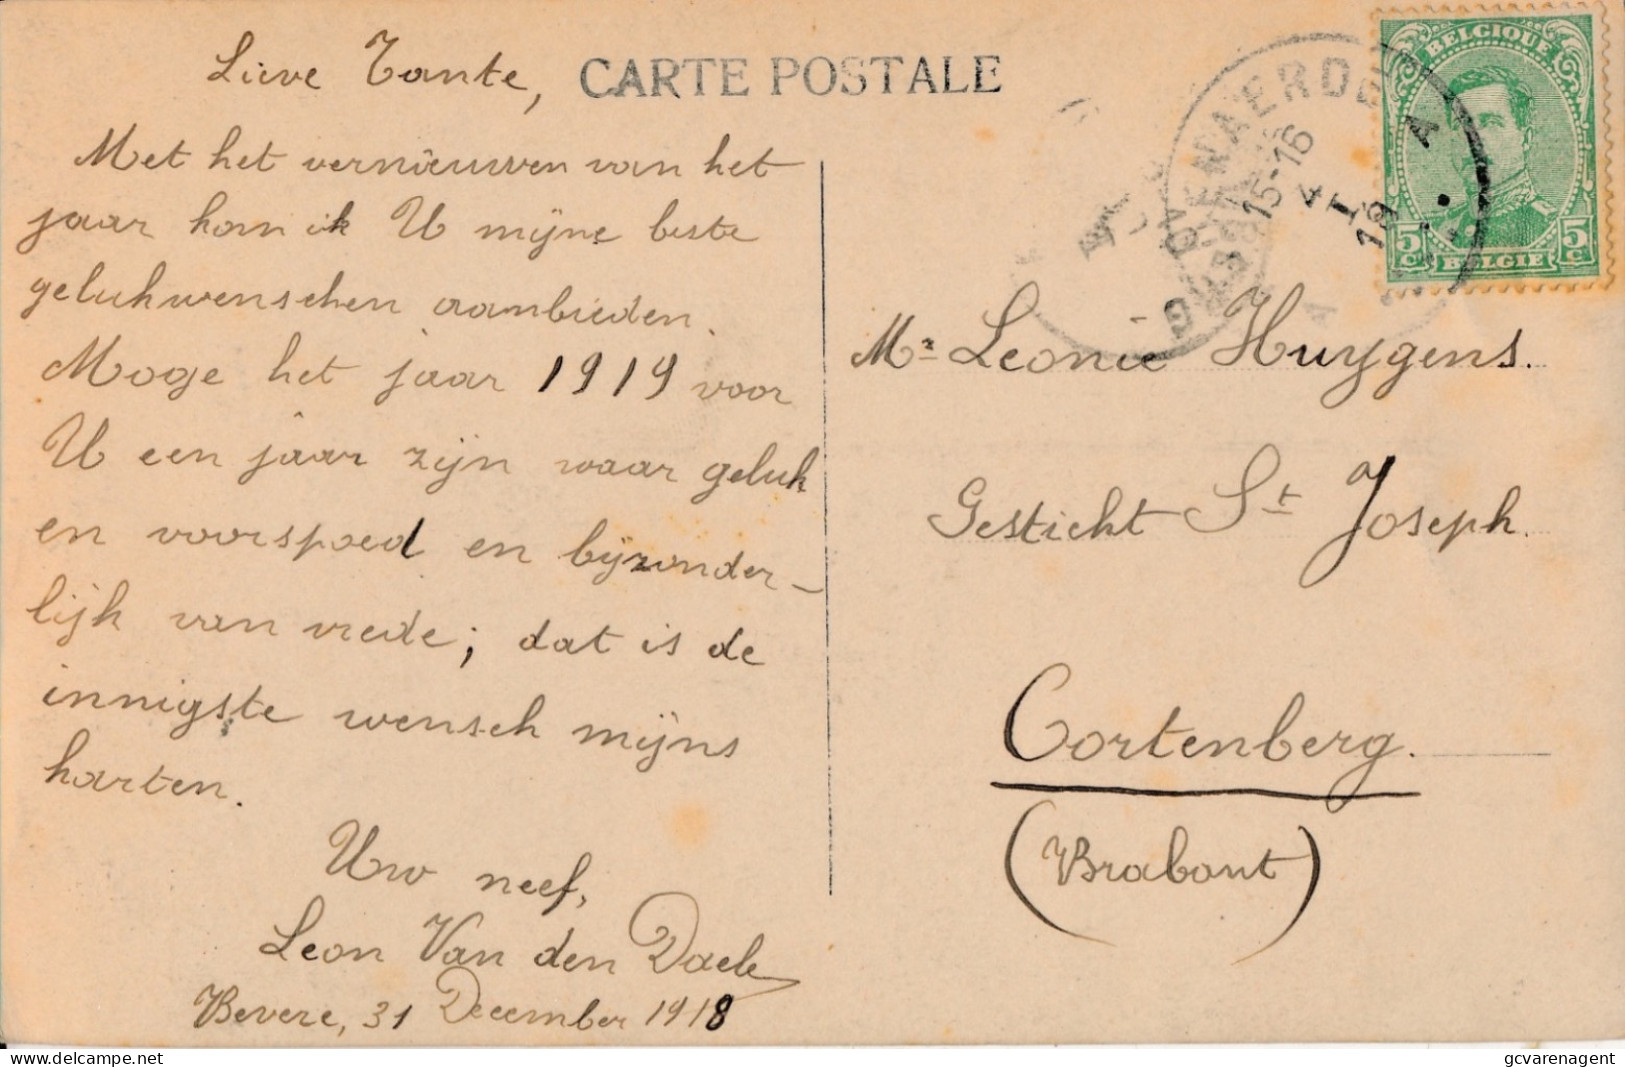 CARTE POSTALE
Lieve Tante,
Met het vernieuwen van het
jaar kom ik U mijne beste
gelukwenschen aanbieden.
Moge het jaar 1919 voor
U een jaar zijn waar geluk
en voorspoed en bijzonder-
lijk van vrede; dat is de
innigste wensch mijns
harten.
Uw neef,
Leon Van den Daele
Bevere, 31 December 1918
BELGIQUE
5c 5c
BELGIE
15-16
4
I
19
A
Mr Leonie Huygens.
Gesticht St Joseph.
Cortenberg.
(Brabant)
delcampe.net
gcvarenagent